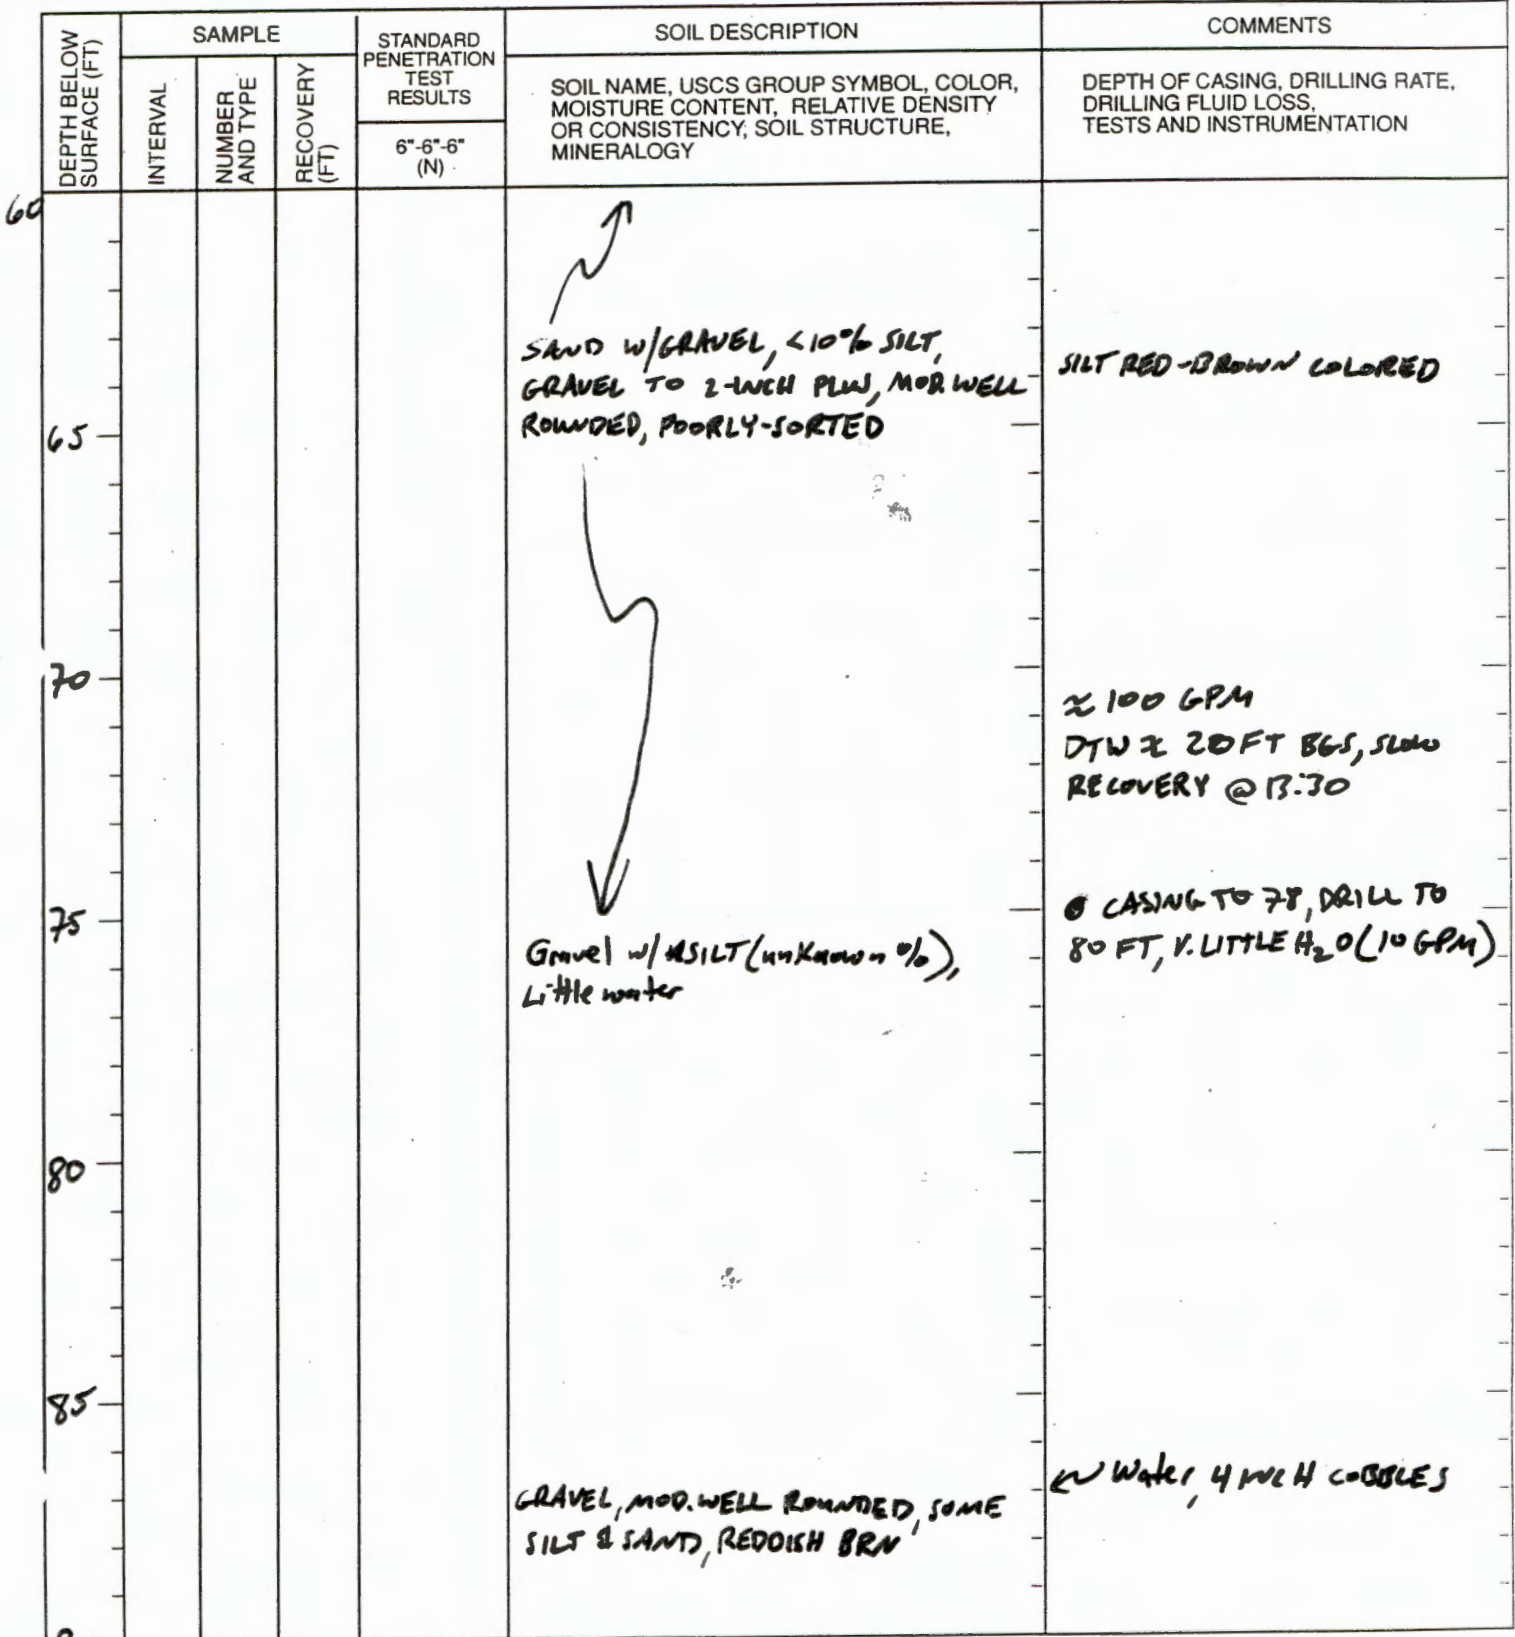 DEPTH BELOW
SURFACE (FT)
SAMPLE
INTERVAL
NUMBER
AND TYPE
RECOVERY
(FT)
STANDARD
PENETRATION
TEST
RESULTS
6"-6"-6"
(N)
SOIL DESCRIPTION
SOIL NAME, USCS GROUP SYMBOL, COLOR,
MOISTURE CONTENT, RELATIVE DENSITY
OR CONSISTENCY, SOIL STRUCTURE,
MINERALOGY
COMMENTS
DEPTH OF CASING, DRILLING RATE,
DRILLING FLUID LOSS,
TESTS AND INSTRUMENTATION
60
SAND W/GRAVEL, <10% SILT,
GRAVEL TO 2-INCH PLUS, MOD. WELL
ROUNDED, POORLY-SORTED
SILT RED-BROWN COLORED
65
70
≈ 100 GPM
DTW ≈ 20 FT BGS, SLOW
RECOVERY @ 13:30
75
CASING TO 78, DRILL TO
80 FT, V. LITTLE H₂O (10 GPM)
Gravel w/ SILT (unknown %),
Little water
80
85
Water, 4 INCH COBBLES
GRAVEL, MOD. WELL ROUNDED, SOME
SILT & SAND, REDDISH BRN